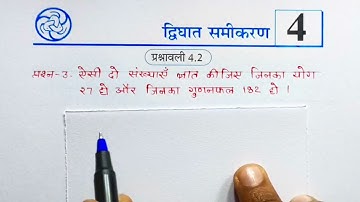 द्विघात समीकरण 4
प्रश्नावली 4.2
प्रश्न-3. ऐसी दो संख्याएँ ज्ञात कीजिए जिनका योग
27 हो और जिनका गुणनफल 182 हो ।